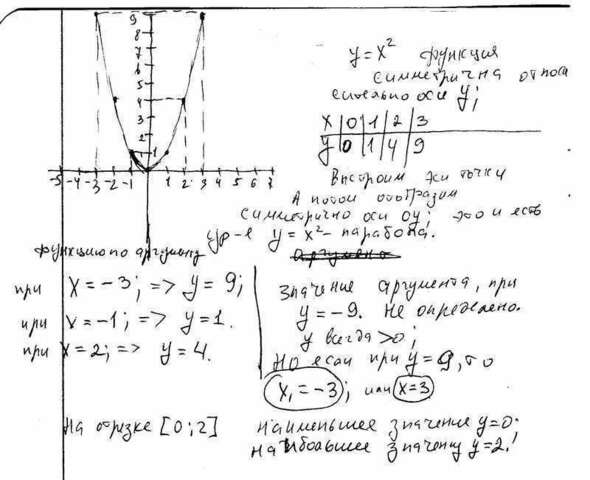 9
8
7
6
5
4
3
2
1
-5 -4 -3 -2 -1 0 1 2 3 4 5 6 7
y=x² функция
симметрична отно
сительно оси y;
x | 0 | 1 | 2 | 3
y | 0 | 1 | 4 | 9
эти точки
А потом отобразим
симметрично оси оу; это и есть
ур-е y=x² - парабола.
функцию по аргументу
при x=-3; => y=9;
при x=-1; => y=1.
при x=2; => y=4.
значение аргумента, при
y=-9. не определено.
y всегда >0;
Но если при y=9, то
x₁=-3; или x=3
На отрезке [0;2]
наименьшее значение y=0.
наибольшее значение y=2.